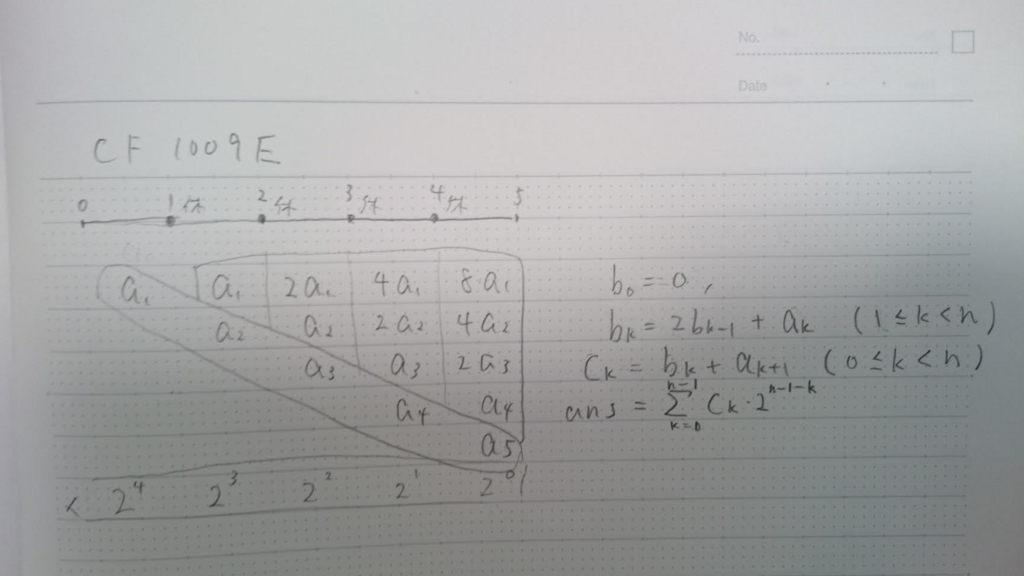 No.
Date
CF 1009E
0 1 休 2 休 3 休 4 休 5
a₁ a₁ 2a₁ 4a₁ 8a₁
a₂ a₂ 2a₂ 4a₂
a₃ a₃ 2a₃
a₄ a₄
a₅
× 2⁴ 2³ 2² 2¹ 2⁰
b₀ = 0,
bₖ = 2bₖ₋₁ + aₖ (1 ≤ k < n)
Cₖ = bₖ + aₖ₊₁ (0 ≤ k < n)
ans = Σₖ₌₀ⁿ⁻¹ Cₖ · 2ⁿ⁻¹⁻ᵏ